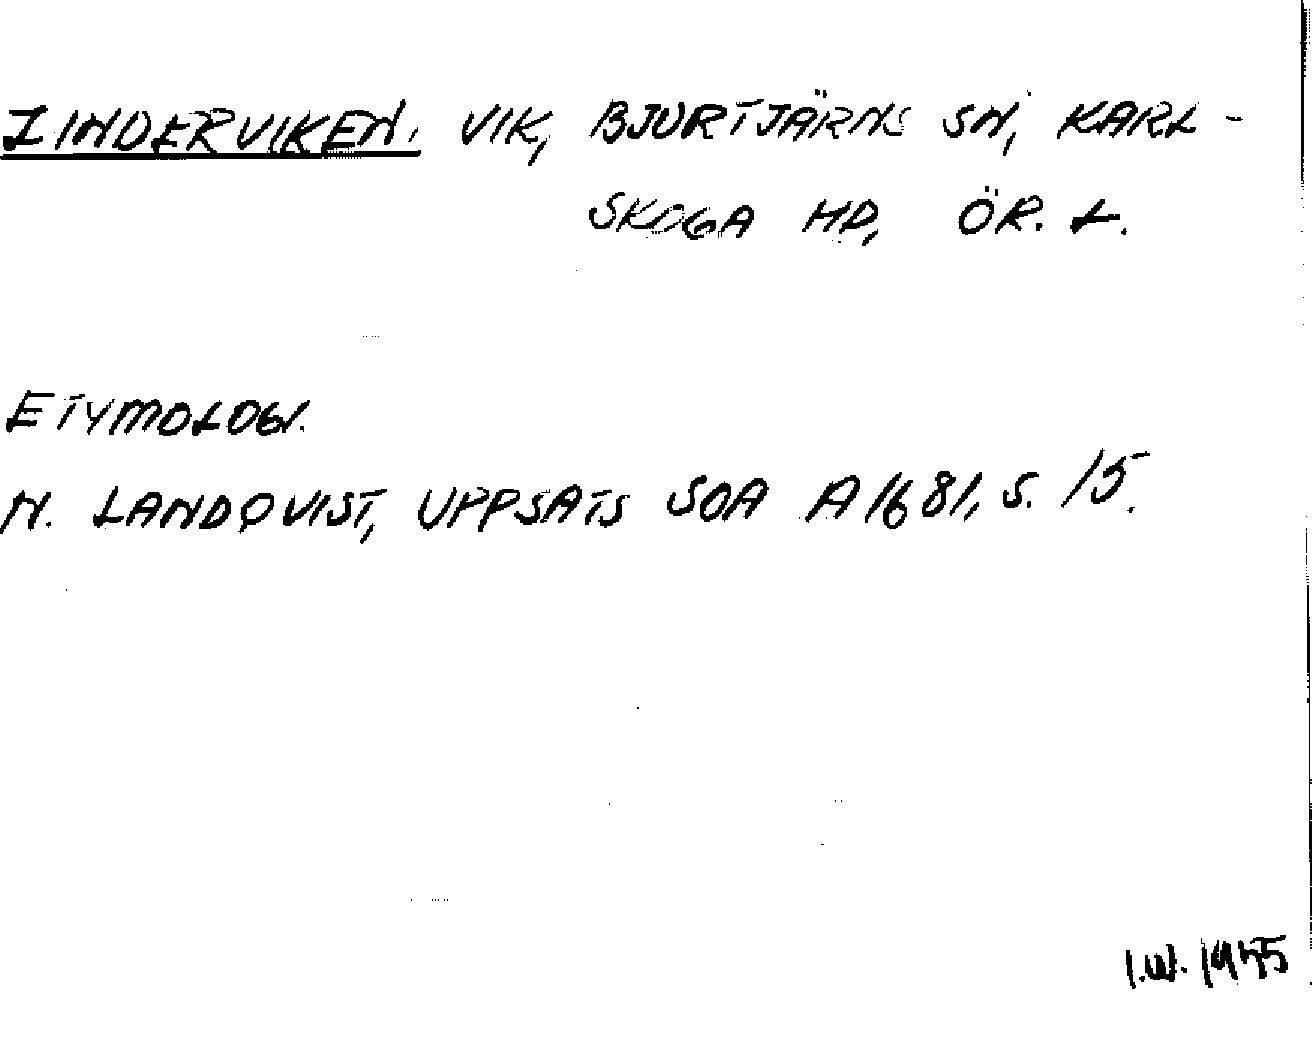 LINDERVIKEN. VIK, BJURTJÄRNS SN, KARL-
SKOGA HD, ÖR. L.
ETYMOLOGI.
N. LANDQVIST, UPPSATS SOA A1681, S. 15.
I.W. 1955